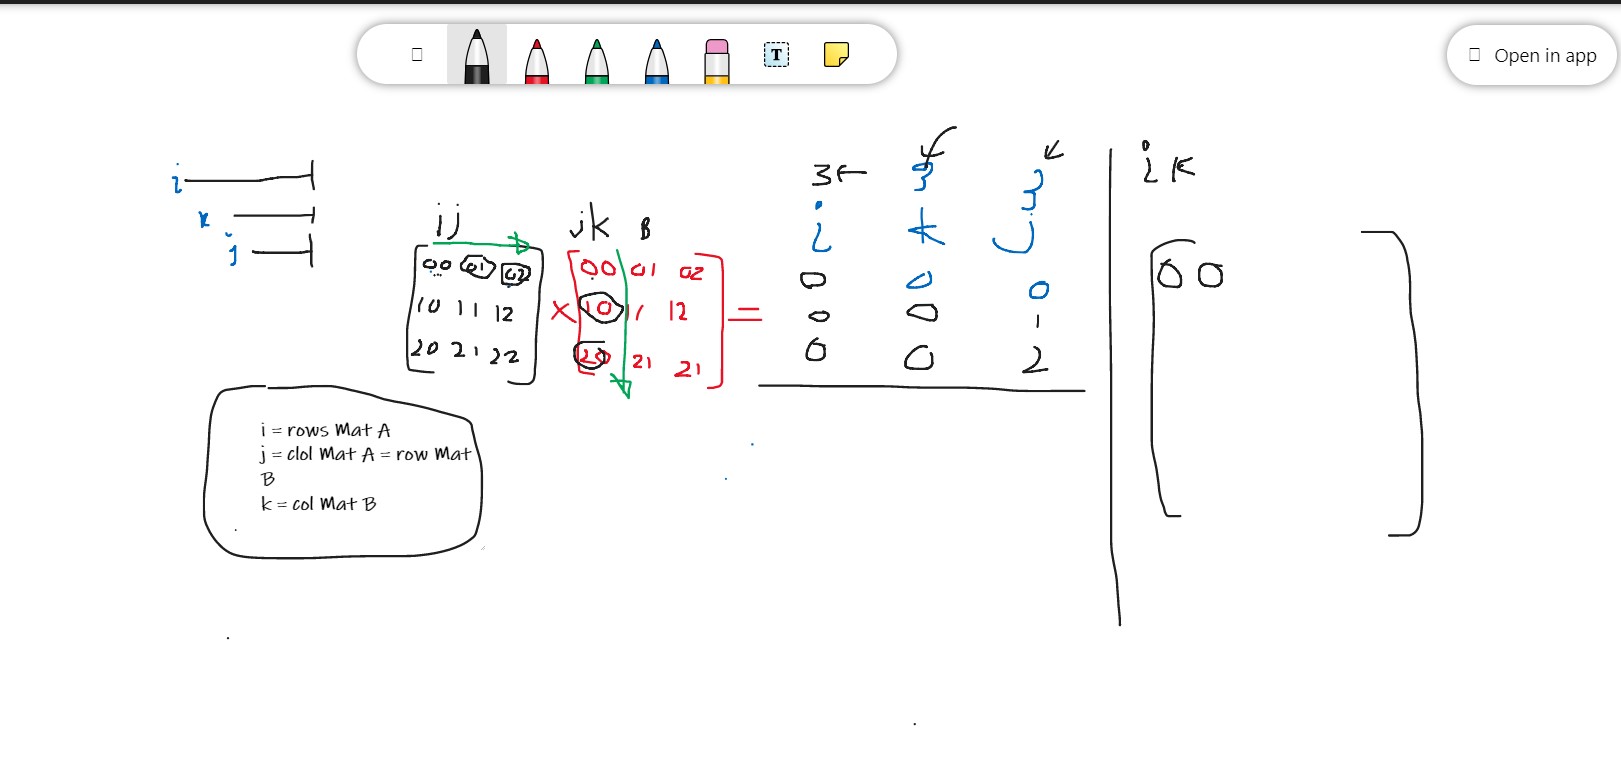 T
Open in app
i
k
j
ij
jk B
00 01 02
10 11 12
20 21 22
x
00 01 02
10 11 12
20 21 21
=
3← 3 3
i k j
0 0 0
0 0 1
0 0 2
ik
00
i = rows Mat A
j = clol Mat A = row Mat
B
k = col Mat B